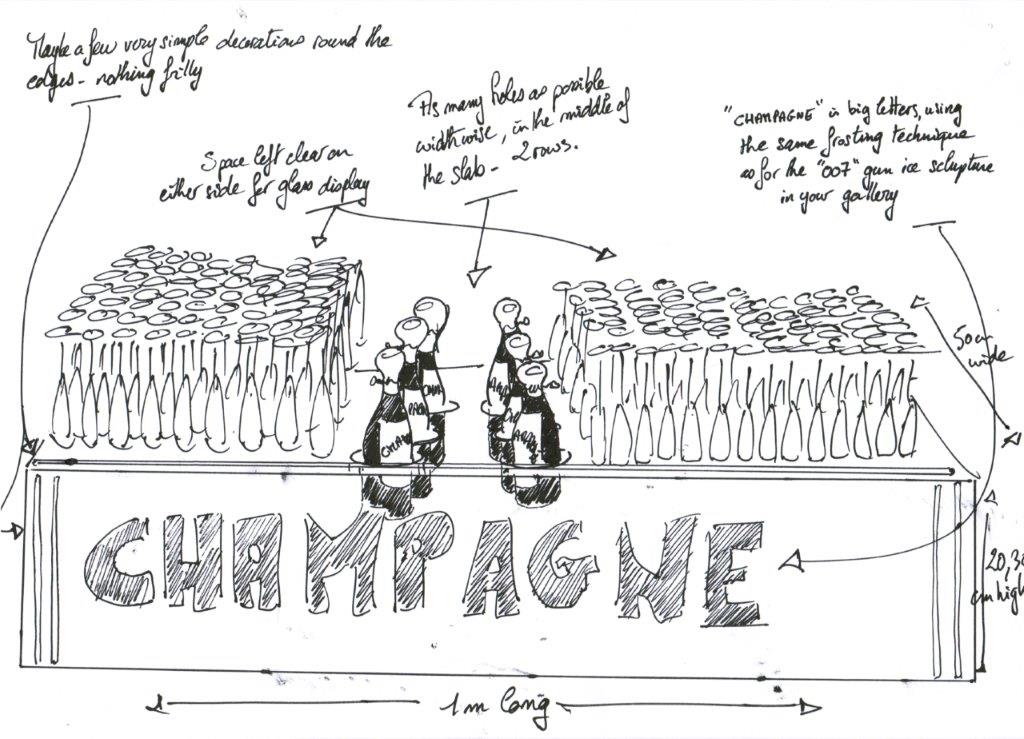 Maybe a few very simple decorations round the
edges - nothing frilly
Space left clear on
either side for glass display
As many holes as possible
widthwise, in the middle of
the slab - 2 rows.
"CHAMPAGNE" in big letters, using
the same frosting technique
as for the "007" gun ice sclupture
in your gallery
50 cm
wide
20,30
cm high
CHAMPAGNE
1 m long